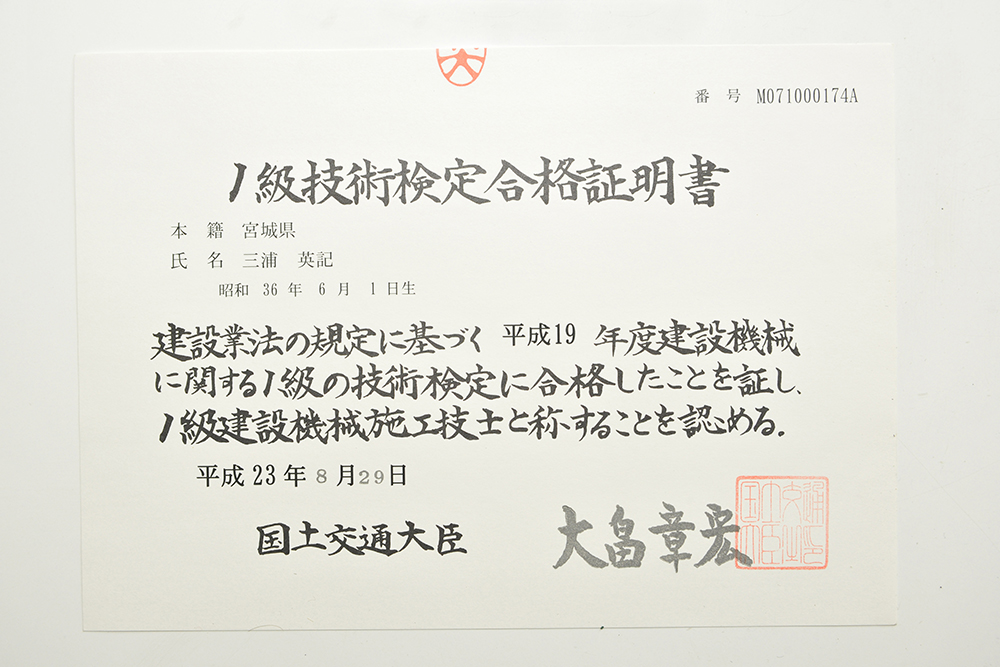 番 号 M071000174A
1級技術検定合格証明書
本 籍 宮城県
氏 名 三浦 英記
昭和 36 年 6 月 1 日生
建設業法の規定に基づく 平成19 年度建設機械
に関する1級の技術検定に合格したことを証し、
1級建設機械施工技士と称することを認める.
平成 23 年 8 月 29 日
国土交通大臣 大畠章宏